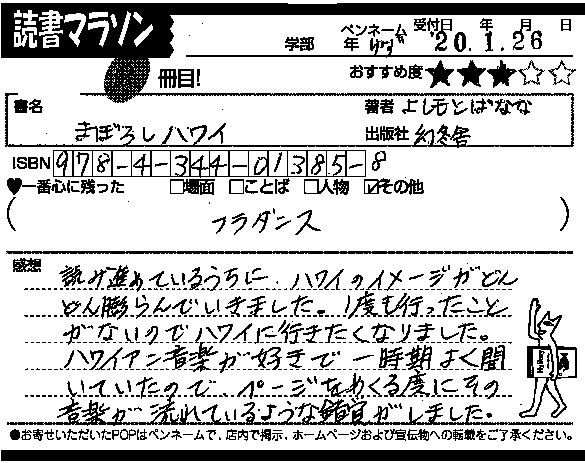 読書マラソン
学部 年 ペンネーム 受付日 年 月 日
'20.1.26
冊目! おすすめ度 ★★★☆☆
書名 まぼろしハワイ
著者 よしもとばなな
出版社 幻冬舎
ISBN 978-4-344-01385-8
♥一番心に残った □場面 □ことば □人物 ☑その他
( フラダンス )
感想
読み進めているうちに、ハワイのイメージがどん
どん膨らんでいきました。1度も行ったこと
がないのでハワイに行きたくなりました。
ハワイアン音楽が好きで一時期よく聞
いていたので、ページをめくる度にその
音楽が流れているような錯覚がしました。
●お寄せいただいたPOPはペンネームで、店内で掲示、ホームページおよび宣伝物への転載をご了承ください。